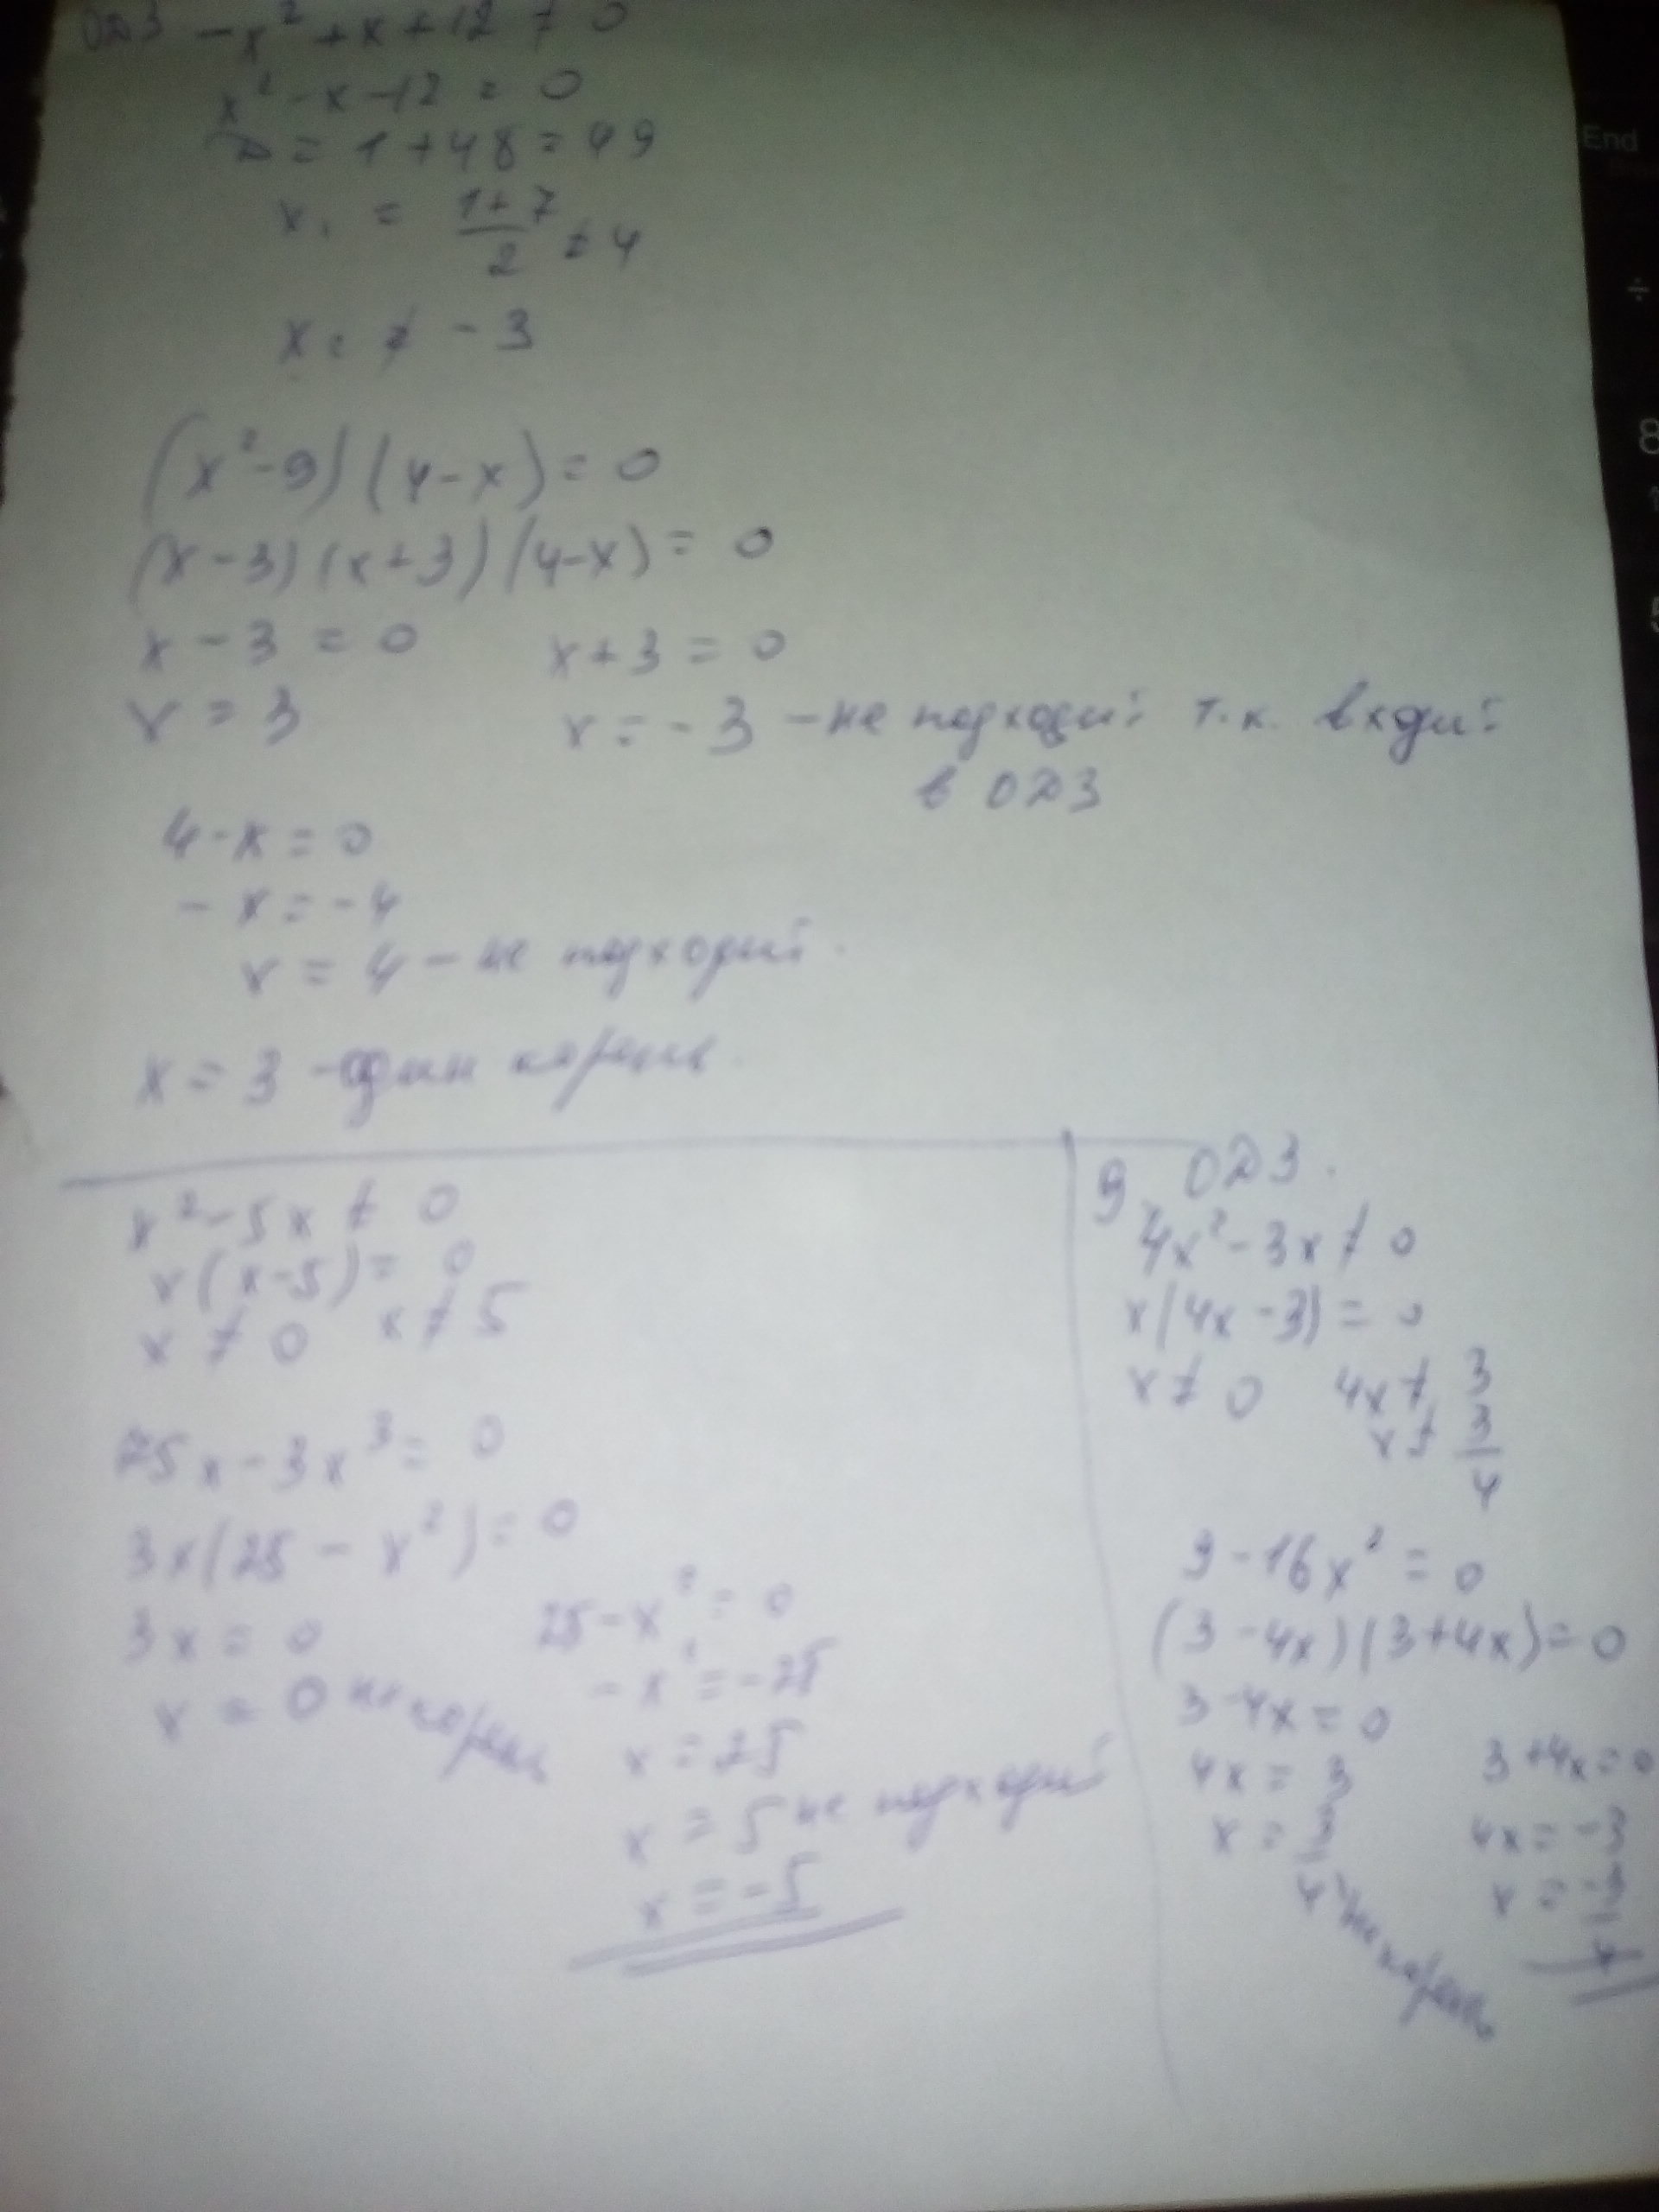 ОДЗ -x² + x + 12 ≠ 0
x² - x - 12 = 0
D = 1 + 48 = 49
x₁ = (1+7)/2 ≠ 4
x₂ ≠ -3
(x² - 9)(4 - x) = 0
(x - 3)(x + 3)(4 - x) = 0
x - 3 = 0 x + 3 = 0
x = 3 x = -3 - не подходит т.к. входит
в ОДЗ
4 - x = 0
- x = -4
x = 4 - не подходит.
x = 3 - один корень.
x² - 5x ≠ 0
x(x - 5) = 0
x ≠ 0 x ≠ 5
75x - 3x³ = 0
3x(25 - x²) = 0
3x = 0 25 - x² = 0
x = 0 не корень - x² = -25
x = 25
x = 5 не подходит
x = -5
9. ОДЗ.
4x² - 3x ≠ 0
x(4x - 3) = 0
x ≠ 0 4x ≠ 3
x ≠ 3/4
9 - 16x² = 0
(3 - 4x)(3 + 4x) = 0
3 - 4x = 0
4x = 3 3 + 4x = 0
x = 3/4 не корень 4x = -3
x = -3/4
End
÷
8
5